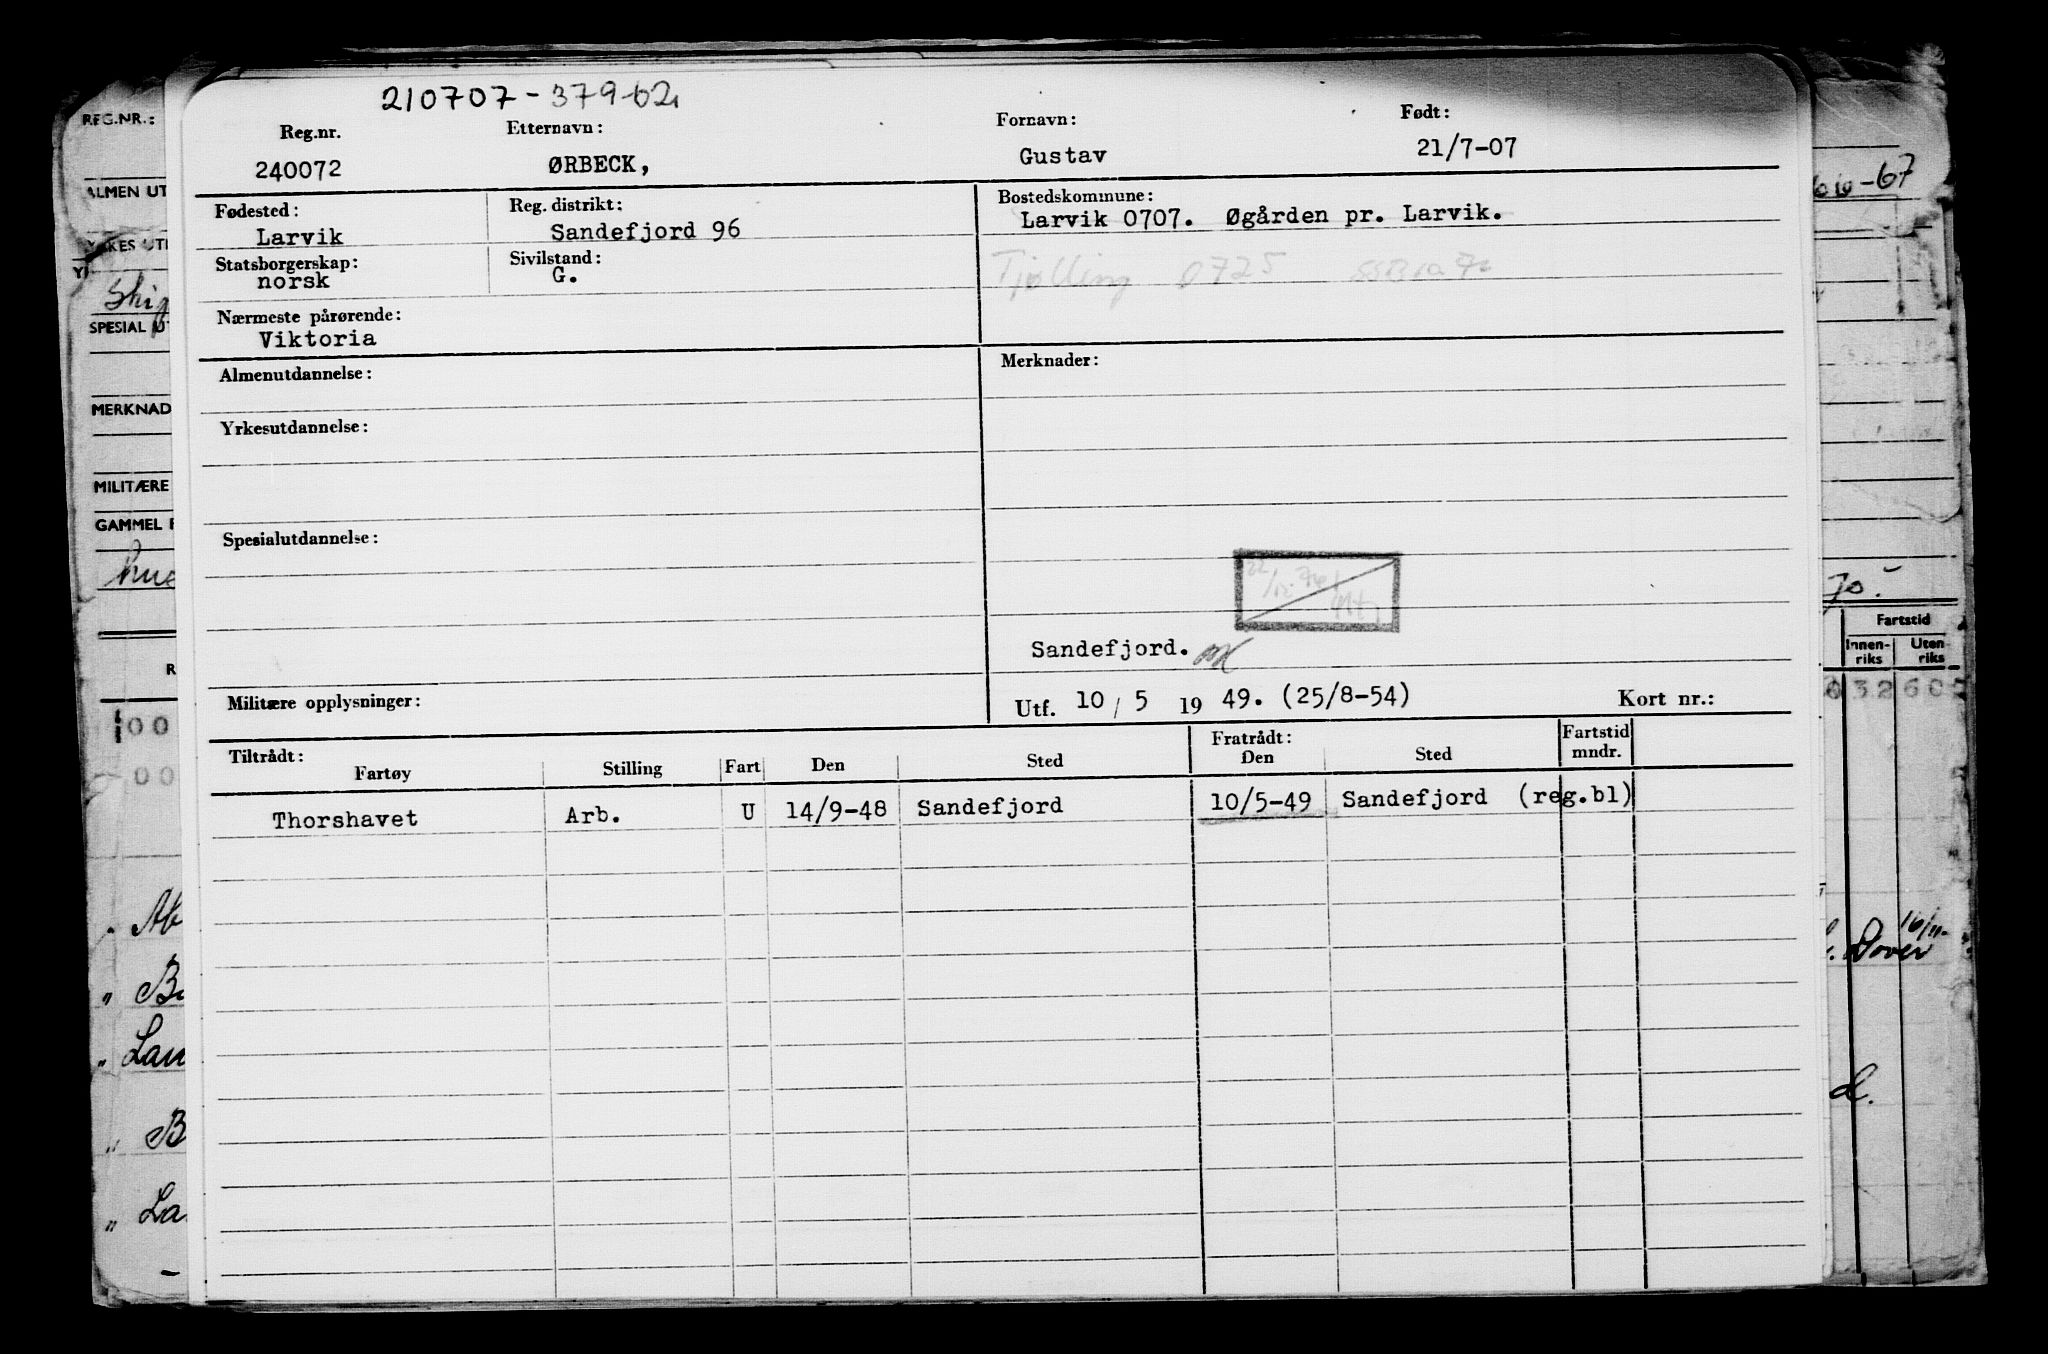 210707-37962
Reg.nr. Etternavn: Fornavn: Født:
240072 ØRBECK, Gustav 21/7-07
Fødested: Reg. distrikt: Bostedskommune:
Larvik Sandefjord 96 Larvik 0707. Øgården pr. Larvik.
Statsborgerskap: Sivilstand:
norsk G. Tjølling 0725
Nærmeste pårørende:
Viktoria
Almenutdannelse: Merknader:
Yrkesutdannelse:
Spesialutdannelse:
Sandefjord.
Militære opplysninger: Utf. 10/5 1949. (25/8-54) Kort nr.:
Tiltrådt: Fratrådt: Fartstid
Fartøy Stilling Fart Den Sted Den Sted mndr.
Thorshavet Arb. U 14/9-48 Sandefjord 10/5-49 Sandefjord (reg.bl)
REG.NR.:
ALMEN UT
-67
YRKES UT
SPESIAL UT
MERKNAD
MILITÆRE
GAMMEL
70.
Fartstid
Innen-riks Uten-riks
R
3260
00
00
Ab
" B
Dover 16/11-
" Lau
" B
d.
" La